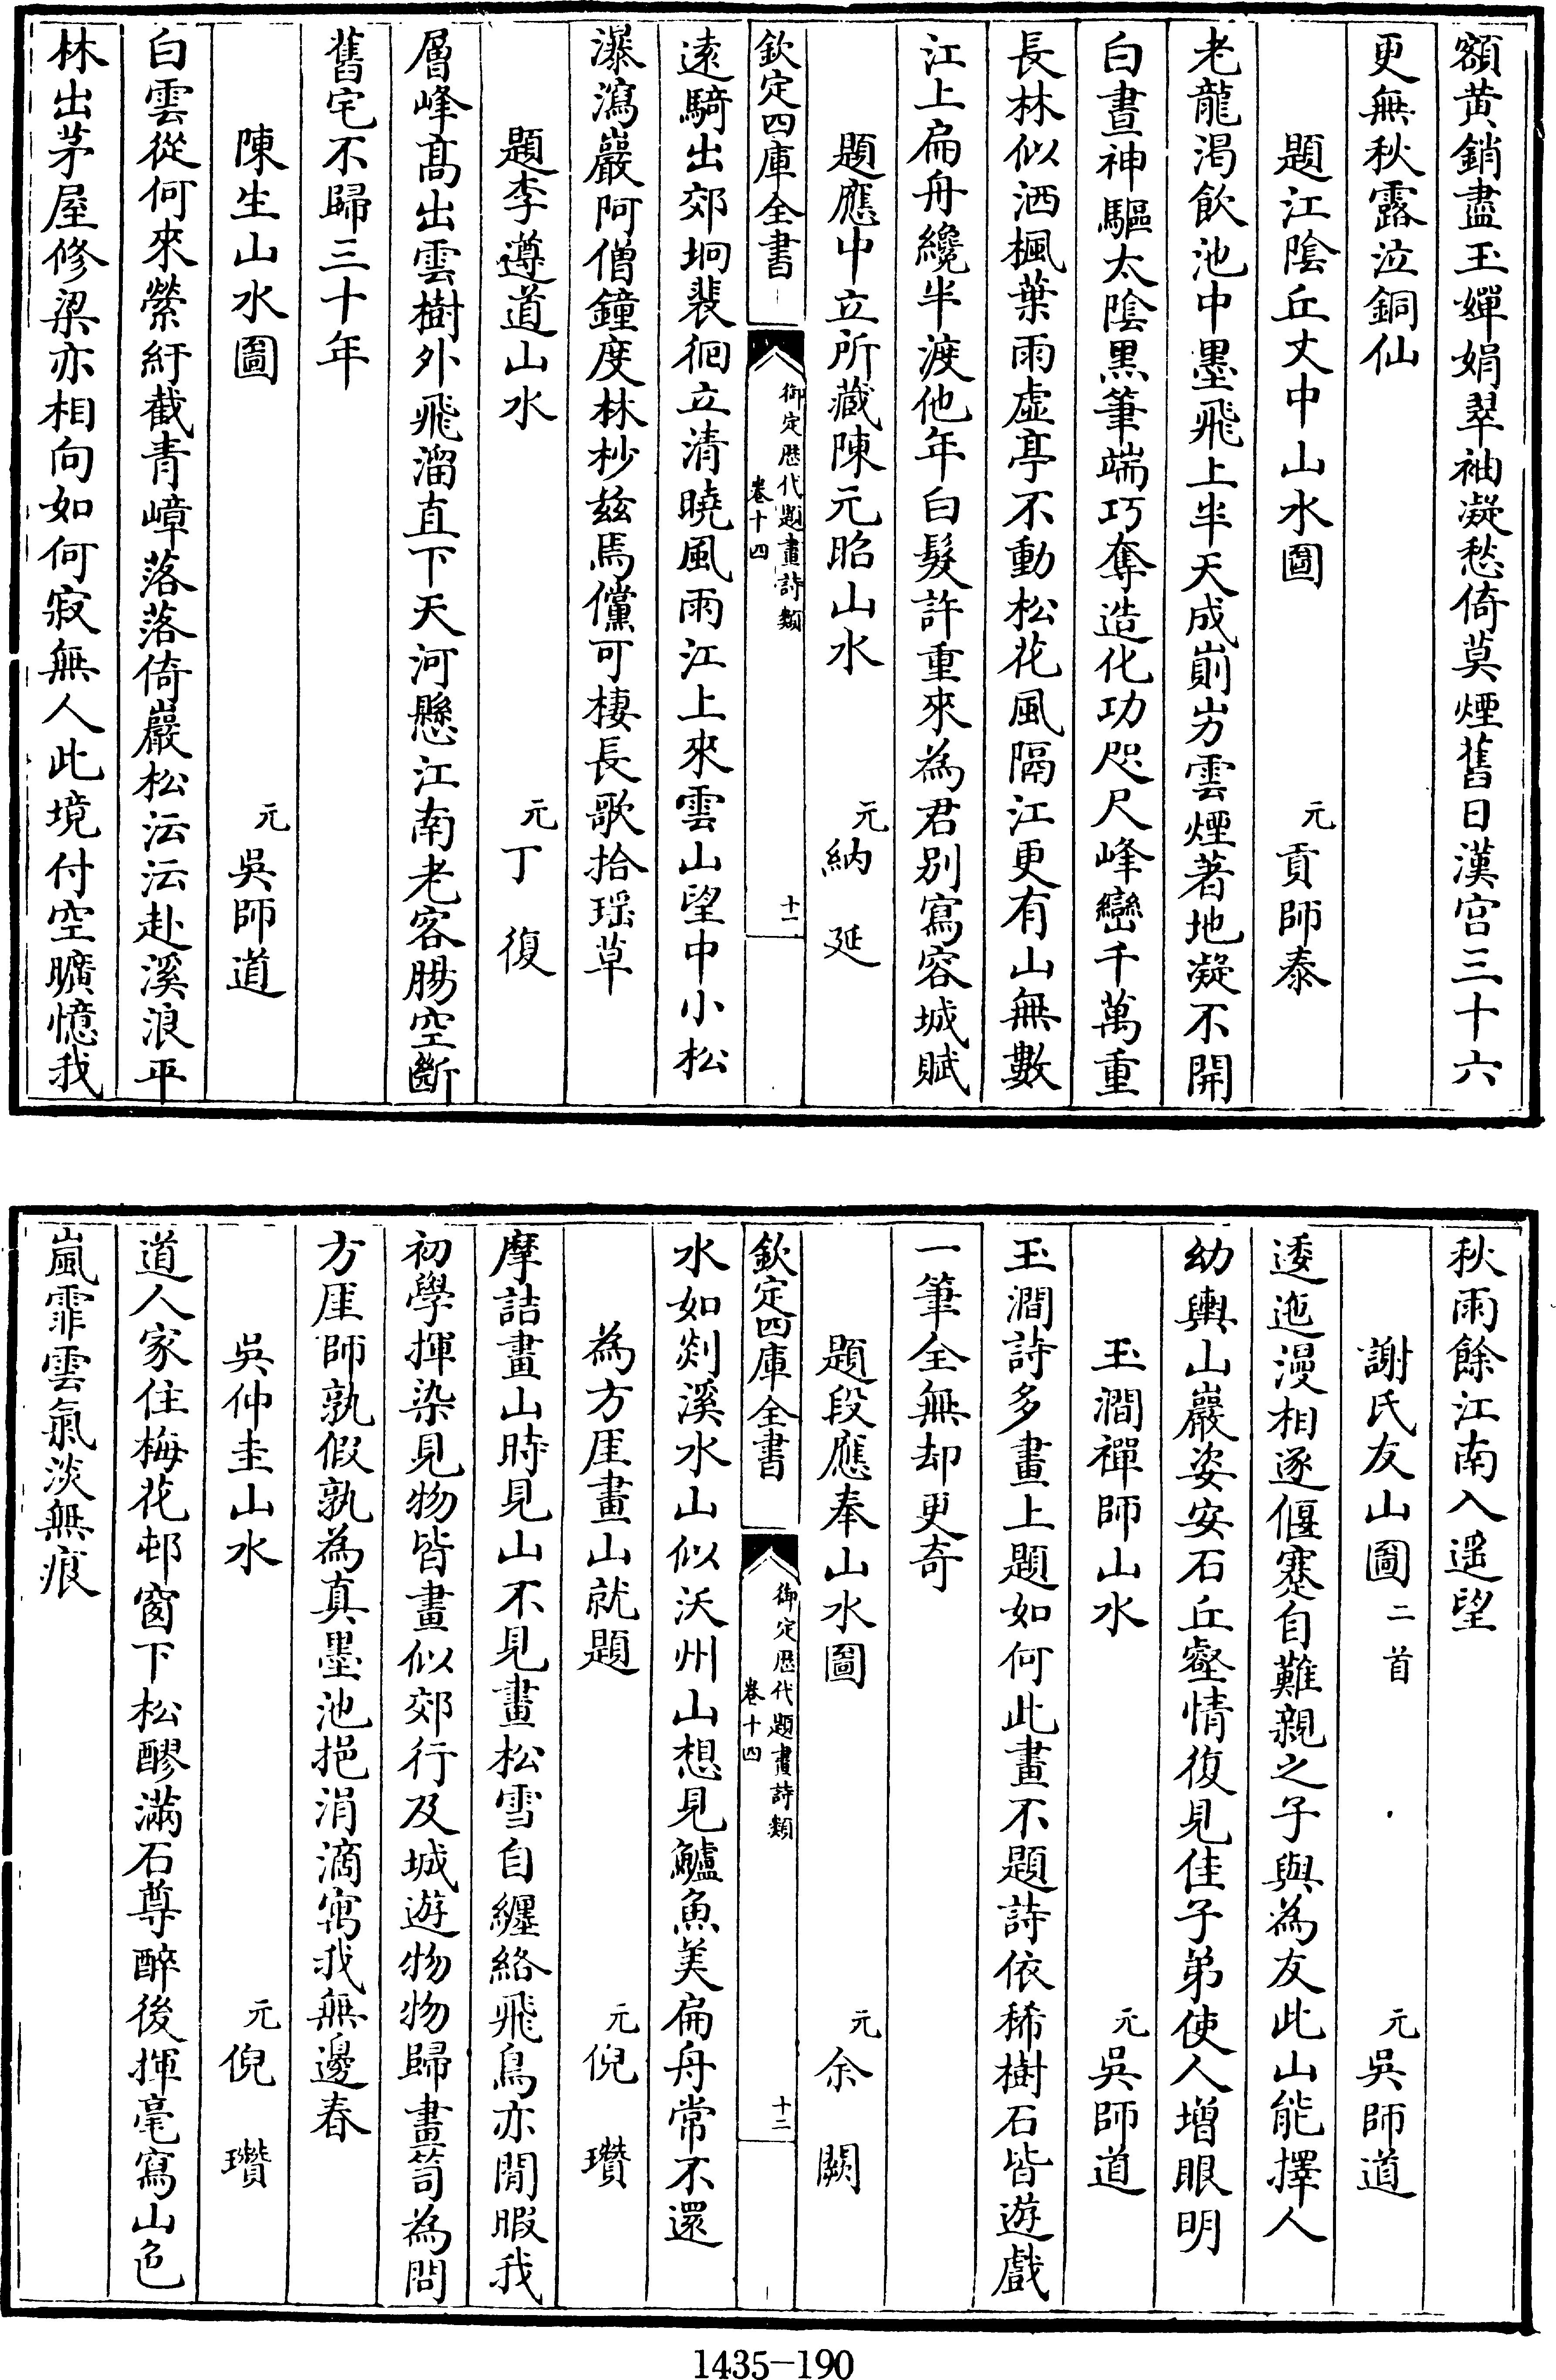 額黄銷盡玉嬋娟翠袖凝愁倚莫煙舊日漢宫三十六
更無秋露泣銅仙
題江陰丘丈中山水圖 元貢師泰
老龍渴飲池中墨飛上半天成崱屴雲煙著地凝不開
白晝神驅太陰黑筆端巧奪造化功咫尺峰巒千萬重
長林似洒楓葉雨虚亭不動松花風隔江更有山無數
江上扁舟纔半渡他年白髮許重來為君别寫容城賦
題應中立所藏陳元昭山水 元納延
欽定四庫全書 御定歴代題畫詩類 卷十四 十一
遠騎出郊坰裴徊立清曉風雨江上來雲山望中小松
瀑瀉巖阿僧鐘度林杪兹焉儻可棲長歌拾瑶草
題李遵道山水 元丁復
層峰髙出雲樹外飛溜直下天河懸江南老客腸空斷
舊宅不歸三十年
陳生山水圖 元吳師道
白雲從何來縈紆截青嶂落落倚巖松沄沄赴溪浪平
林出茅屋修梁亦相向如何寂無人此境付空曠憶我
秋雨餘江南入遥望
謝氏友山圖二首 元吳師道
逶迤漫相逐偃蹇自難親之子與為友此山能擇人
幼輿山巖姿安石丘壑情復見佳子弟使人增眼明
玉澗禪師山水 元吳師道
玉澗詩多畫上題如何此畫不題詩依稀樹石皆遊戲
一筆全無却更奇
題段應奉山水圖 元余闕
欽定四庫全書 御定歴代題畫詩類 卷十四 十二
水如剡溪水山似沃州山想見鱸魚美扁舟常不還
為方厓畫山就題 元倪瓚
摩詰畫山時見山不見畫松雪自纏絡飛鳥亦閒暇我
初學揮染見物皆畫似郊行及城遊物物歸畫笥為問
方厓師孰假孰為真墨池挹涓滴寓我無邊春
吳仲圭山水 元倪瓚
道人家住梅花邨窗下松醪滿石尊醉後揮毫寫山色
嵐霏雲氣淡無痕
1435-190